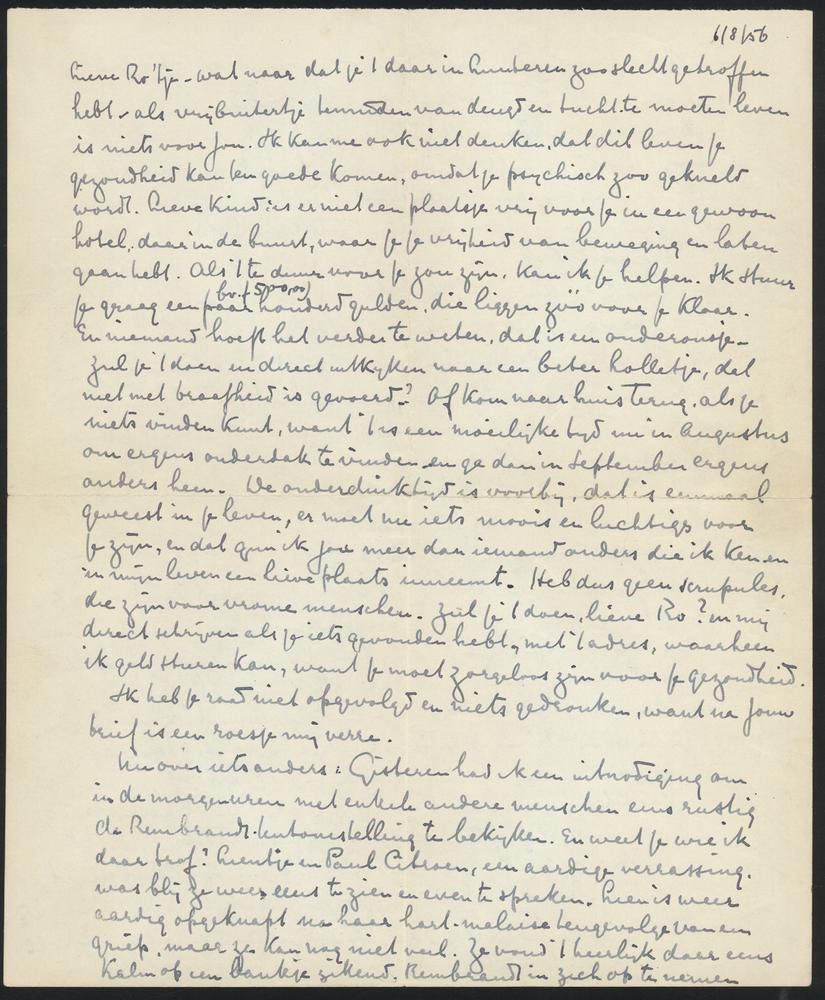 6/8/56
Lieve Ro'tje - wat naar dat je 't daar in Lunteren zoo slecht getroffen
hebt - als vrijbuitertje temidden van deugd en tucht te moeten leven
is niets voor jou. Ik kan me ook niet denken, dat dit leven je
gezondheid kan ten goede komen, omdat je psychisch zoo gekneld
wordt. Lieve kind: is er niet een plaatsje vrij voor je in een gewoon
hotel, daar in de buurt, waar je je vrijheid van beweging en laten
gaan hebt. Als 't te duur voor je zou zijn, kan ik je helpen. Ik stuur
bv. f 500,00)
je graag een (paar honderd gulden, die liggen zóó voor je klaar.
En niemand hoeft het verder te weten, dat is een onderonsje -
zul je 't doen en direct uitkijken naar een beter holletje, dat
niet met braafheid is gevoerd? Of kom naar huis terug, als je
niets vinden kunt, want 't is een moeilijke tijd nu in Augustus
om ergens onderdak te vinden en ga dan in September ergens
anders heen. De onderduiktijd is voorbij, dat is eenmaal
geweest in je leven, er moet nu iets moois en luchtigs voor
je zijn, en dat gun ik jou meer dan iemand anders die ik ken en
in mijn leven een lieve plaats inneemt. Heb dus geen scrupules,
die zijn voor vrome menschen. Zul je 't doen, lieve Ro? en mij
direct schrijven als je iets gevonden hebt, met 't adres, waarheen
ik geld sturen kan, want je moet zorgeloos zijn voor je gezondheid.
Ik heb je raad niet opgevolgd en niets gedronken, want na jouw
brief is een roesje mij verre.
Nu over iets anders: Gisteren had ik een uitnodiging om
in de morgenuren met enkele andere menschen eens rustig
de Rembrandt-tentoonstelling te bekijken. En weet je wie ik
daar trof? Lientje en Paul Citroen, een aardige verrassing.
was blij ze weer eens te zien en even te spreken. Lien is weer
aardig opgeknapt na haar hart-malaise tengevolge van een
griep, maar ze kan nog niet veel. Ze vond 't heerlijk daar eens
kalm op een bankje zittend, Rembrandt in zich op te nemen